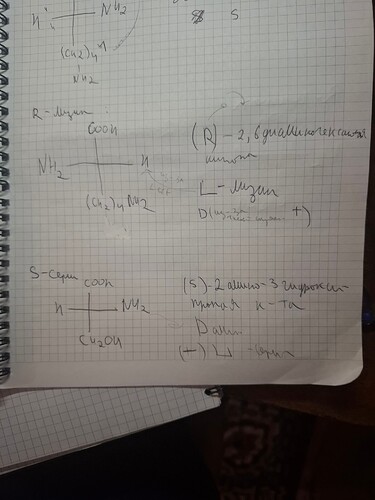 H
NH2
(CH2)4
NH2
S
R-лизин
COOH
NH2
H
(CH2)4 NH2
(R) - 2,6 диаминогексановая
кислота
L - лизин
D(
+)
S-серин
COOH
H
NH2
CH2OH
(S) - 2 амино-3 гидрокси-
к-та
D
(-) L - серин